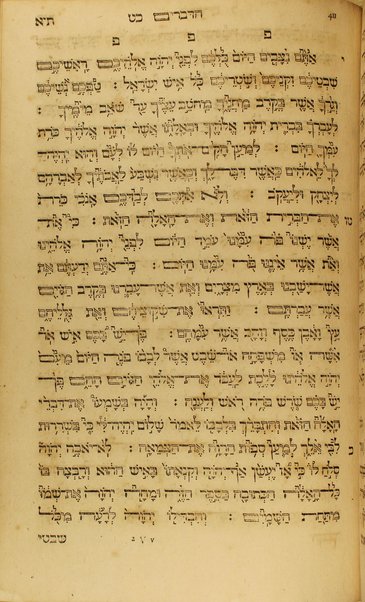 הדברים כט תיא 40
פ פ פ
אַתֶּם נִצָּבִים הַיּוֹם כֻּלְּכֶם לִפְנֵי יְהוָה אֱלֹהֵיכֶם רָאשֵׁיכֶם
שִׁבְטֵיכֶם זִקְנֵיכֶם וְשֹׁטְרֵיכֶם כֹּל אִישׁ יִשְׂרָאֵל : טַפְּכֶם נְשֵׁיכֶם
וְגֵרְךָ אֲשֶׁר בְּקֶרֶב מַחֲנֶיךָ מֵחֹטֵב עֵצֶיךָ עַד שֹׁאֵב מֵימֶיךָ :
לְעָבְרְךָ בִּבְרִית יְהוָה אֱלֹהֶיךָ וּבְאָלָתוֹ אֲשֶׁר יְהוָה אֱלֹהֶיךָ כֹּרֵת
עִמְּךָ הַיּוֹם : לְמַעַן הָקִים־אֹתְךָ הַיּוֹם לוֹ לְעָם וְהוּא יִהְיֶה־
לְּךָ לֵאלֹהִים כַּאֲשֶׁר דִּבֶּר־לָךְ וְכַאֲשֶׁר נִשְׁבַּע לַאֲבֹתֶיךָ לְאַבְרָהָם
לְיִצְחָק וּלְיַעֲקֹב : וְלֹא אִתְּכֶם לְבַדְּכֶם אָנֹכִי כֹּרֵת
אֶת־הַבְּרִית הַזֹּאת וְאֶת־הָאָלָה הַזֹּאת : כִּי אֶת־
אֲשֶׁר יֶשְׁנוֹ פֹּה עִמָּנוּ עֹמֵד הַיּוֹם לִפְנֵי יְהוָה אֱלֹהֵינוּ
וְאֵת אֲשֶׁר אֵינֶנּוּ פֹּה עִמָּנוּ הַיּוֹם : כִּי־אַתֶּם יְדַעְתֶּם אֵת
אֲשֶׁר־יָשַׁבְנוּ בְּאֶרֶץ מִצְרָיִם וְאֵת אֲשֶׁר־עָבַרְנוּ בְּקֶרֶב הַגּוֹיִם
אֲשֶׁר עֲבַרְתֶּם : וַתִּרְאוּ אֶת־שִׁקּוּצֵיהֶם וְאֵת גִּלֻּלֵיהֶם
עֵץ וָאֶבֶן כֶּסֶף וְזָהָב אֲשֶׁר עִמָּהֶם : פֶּן־יֵשׁ בָּכֶם אִישׁ אוֹ־
אִשָּׁה אוֹ מִשְׁפָּחָה אוֹ־שֵׁבֶט אֲשֶׁר לְבָבוֹ פֹנֶה הַיּוֹם מֵעִם
יְהוָה אֱלֹהֵינוּ לָלֶכֶת לַעֲבֹד אֶת־אֱלֹהֵי הַגּוֹיִם הָהֵם פֶּן־
יֵשׁ בָּכֶם שֹׁרֶשׁ פֹּרֶה רֹאשׁ וְלַעֲנָה : וְהָיָה בְּשָׁמְעוֹ אֶת־דִּבְרֵי
הָאָלָה הַזֹּאת וְהִתְבָּרֵךְ בִּלְבָבוֹ לֵאמֹר שָׁלוֹם יִהְיֶה־לִּי כִּי בִּשְׁרִרוּת
לִבִּי אֵלֵךְ לְמַעַן סְפוֹת הָרָוָה אֶת־הַצְּמֵאָה : לֹא־יֹאבֶה יְהוָה
סְלֹחַ לוֹ כִּי אָז יֶעְשַׁן אַף־יְהוָה וְקִנְאָתוֹ בָּאִישׁ הַהוּא וְרָבְצָה בּוֹ
כָּל־הָאָלָה הַכְּתוּבָה בַּסֵּפֶר הַזֶּה וּמָחָה יְהוָה אֶת־שְׁמוֹ
מִתַּחַת הַשָּׁמָיִם : וְהִבְדִּילוֹ יְהוָה לְרָעָה מִכֹּל
שבטי